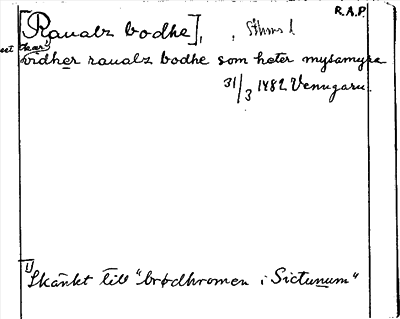 R.A.P.
[Raualz bodhe], Sthms l
set skær¹⁾
vidher raualz bodhe som heter mysamyra
31/3 1482 Venngarn.
1) Skänkt till "brødhromen i Sictunum"